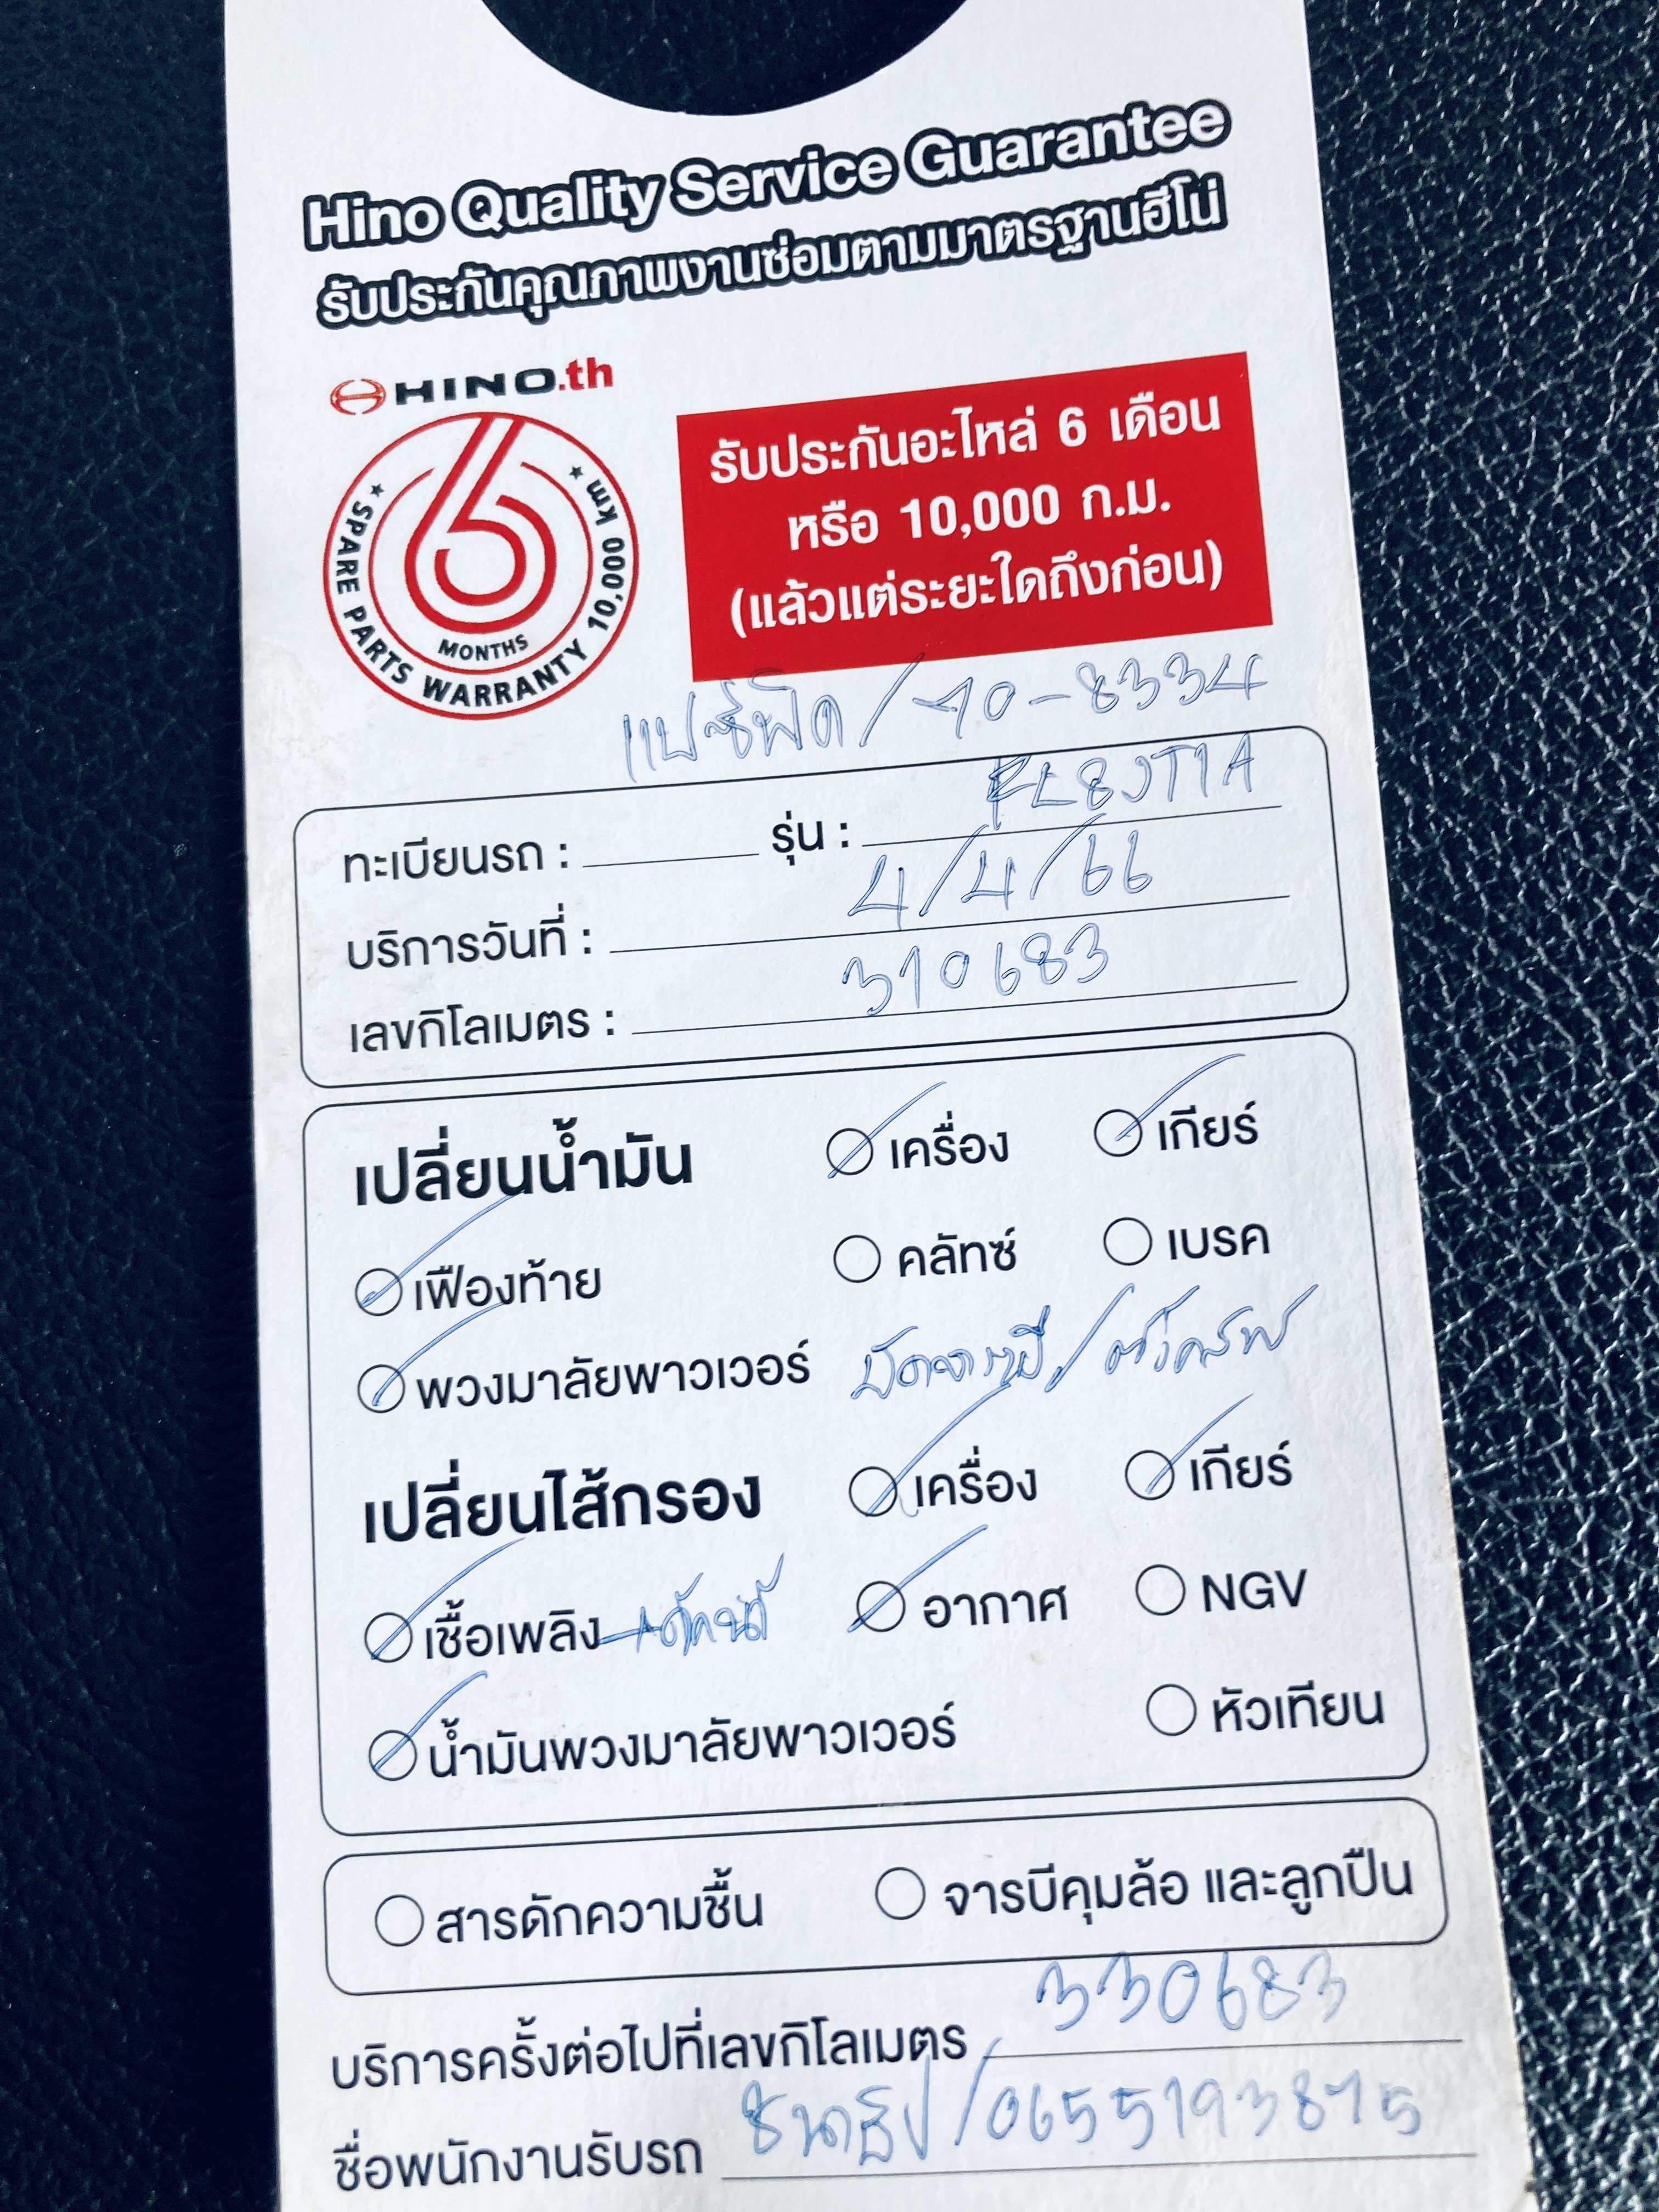 Hino Quality Service Guarantee
รับประกันคุณภาพงานซ่อมตามมาตรฐานฮีโน่
HINO.th
6
MONTHS
★ SPARE PARTS WARRANTY 10,000 KM ★
รับประกันอะไหล่ 6 เดือน
หรือ 10,000 ก.ม.
(แล้วแต่ระยะใดถึงก่อน)
/ 70-8334
ทะเบียนรถ : รุ่น : FL8JT1A
บริการวันที่ : 4/4/66
เลขกิโลเมตร : 310683
เปลี่ยนน้ำมัน เครื่อง เกียร์
เฟืองท้าย คลัทซ์ เบรค
พวงมาลัยพาวเวอร์ อัดจารบี/
เปลี่ยนไส้กรอง เครื่อง เกียร์
เชื้อเพลิง +ดักน้ำ อากาศ NGV
น้ำมันพวงมาลัยพาวเวอร์ หัวเทียน
สารดักความชื้น จารบีคุมล้อ และลูกปืน
บริการครั้งต่อไปที่เลขกิโลเมตร 330683
ชื่อพนักงานรับรถ / 0655193875